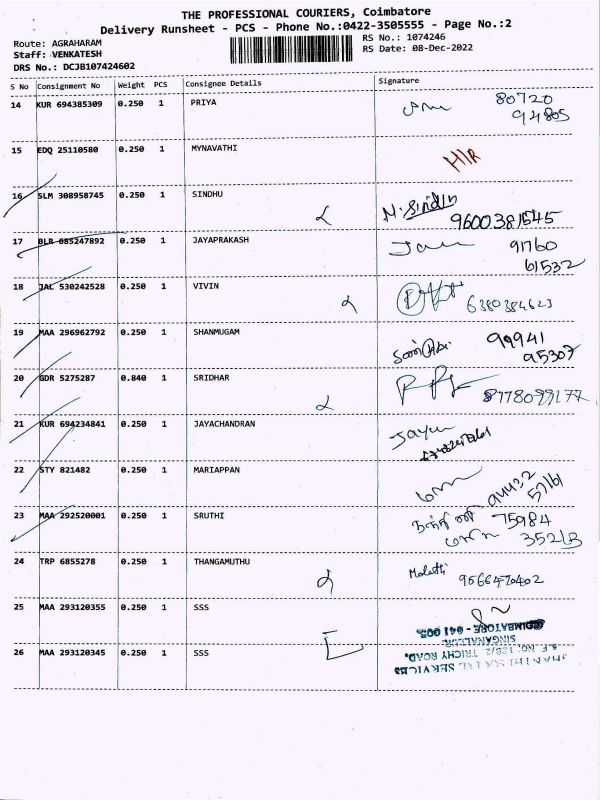 THE PROFESSIONAL COURIERS, Coimbatore
Delivery Runsheet - PCS - Phone No.:0422-3505555 - Page No.:2
Route: AGRAHARAM RS No.: 1074246
Staff: VENKATESH RS Date: 08-Dec-2022
DRS No.: DCJB107424602
S No Consignment No Weight PCS Consignee Details Signature
14 KUR 694385309 0.250 1 PRIYA 80720
94805
15 EDQ 25110580 0.250 1 MYNAVATHI H/R
16 SLM 308958745 0.250 1 SINDHU N. Sindhu
9600381545
17 BLR 685247892 0.250 1 JAYAPRAKASH 91760
61532
18 JAL 530242528 0.250 1 VIVIN 6380384623
19 MAA 296962792 0.250 1 SHANMUGAM 99941
95307
20 GDR 5275287 0.840 1 SRIDHAR 8778099177
21 KUR 694234841 0.250 1 JAYACHANDRAN
22 STY 821482 0.250 1 MARIAPPAN
57161
23 MAA 292520001 0.250 1 SRUTHI 75984
35213
24 TRP 6855278 0.250 1 THANGAMUTHU Malathi 9566470402
25 MAA 293120355 0.250 1 SSS
26 MAA 293120345 0.250 1 SSS
SOCIAL SERVICES
S.F. NO. 128/2, TRICHY ROAD,
SINGANALLUR,
COIMBATORE - 641 005.